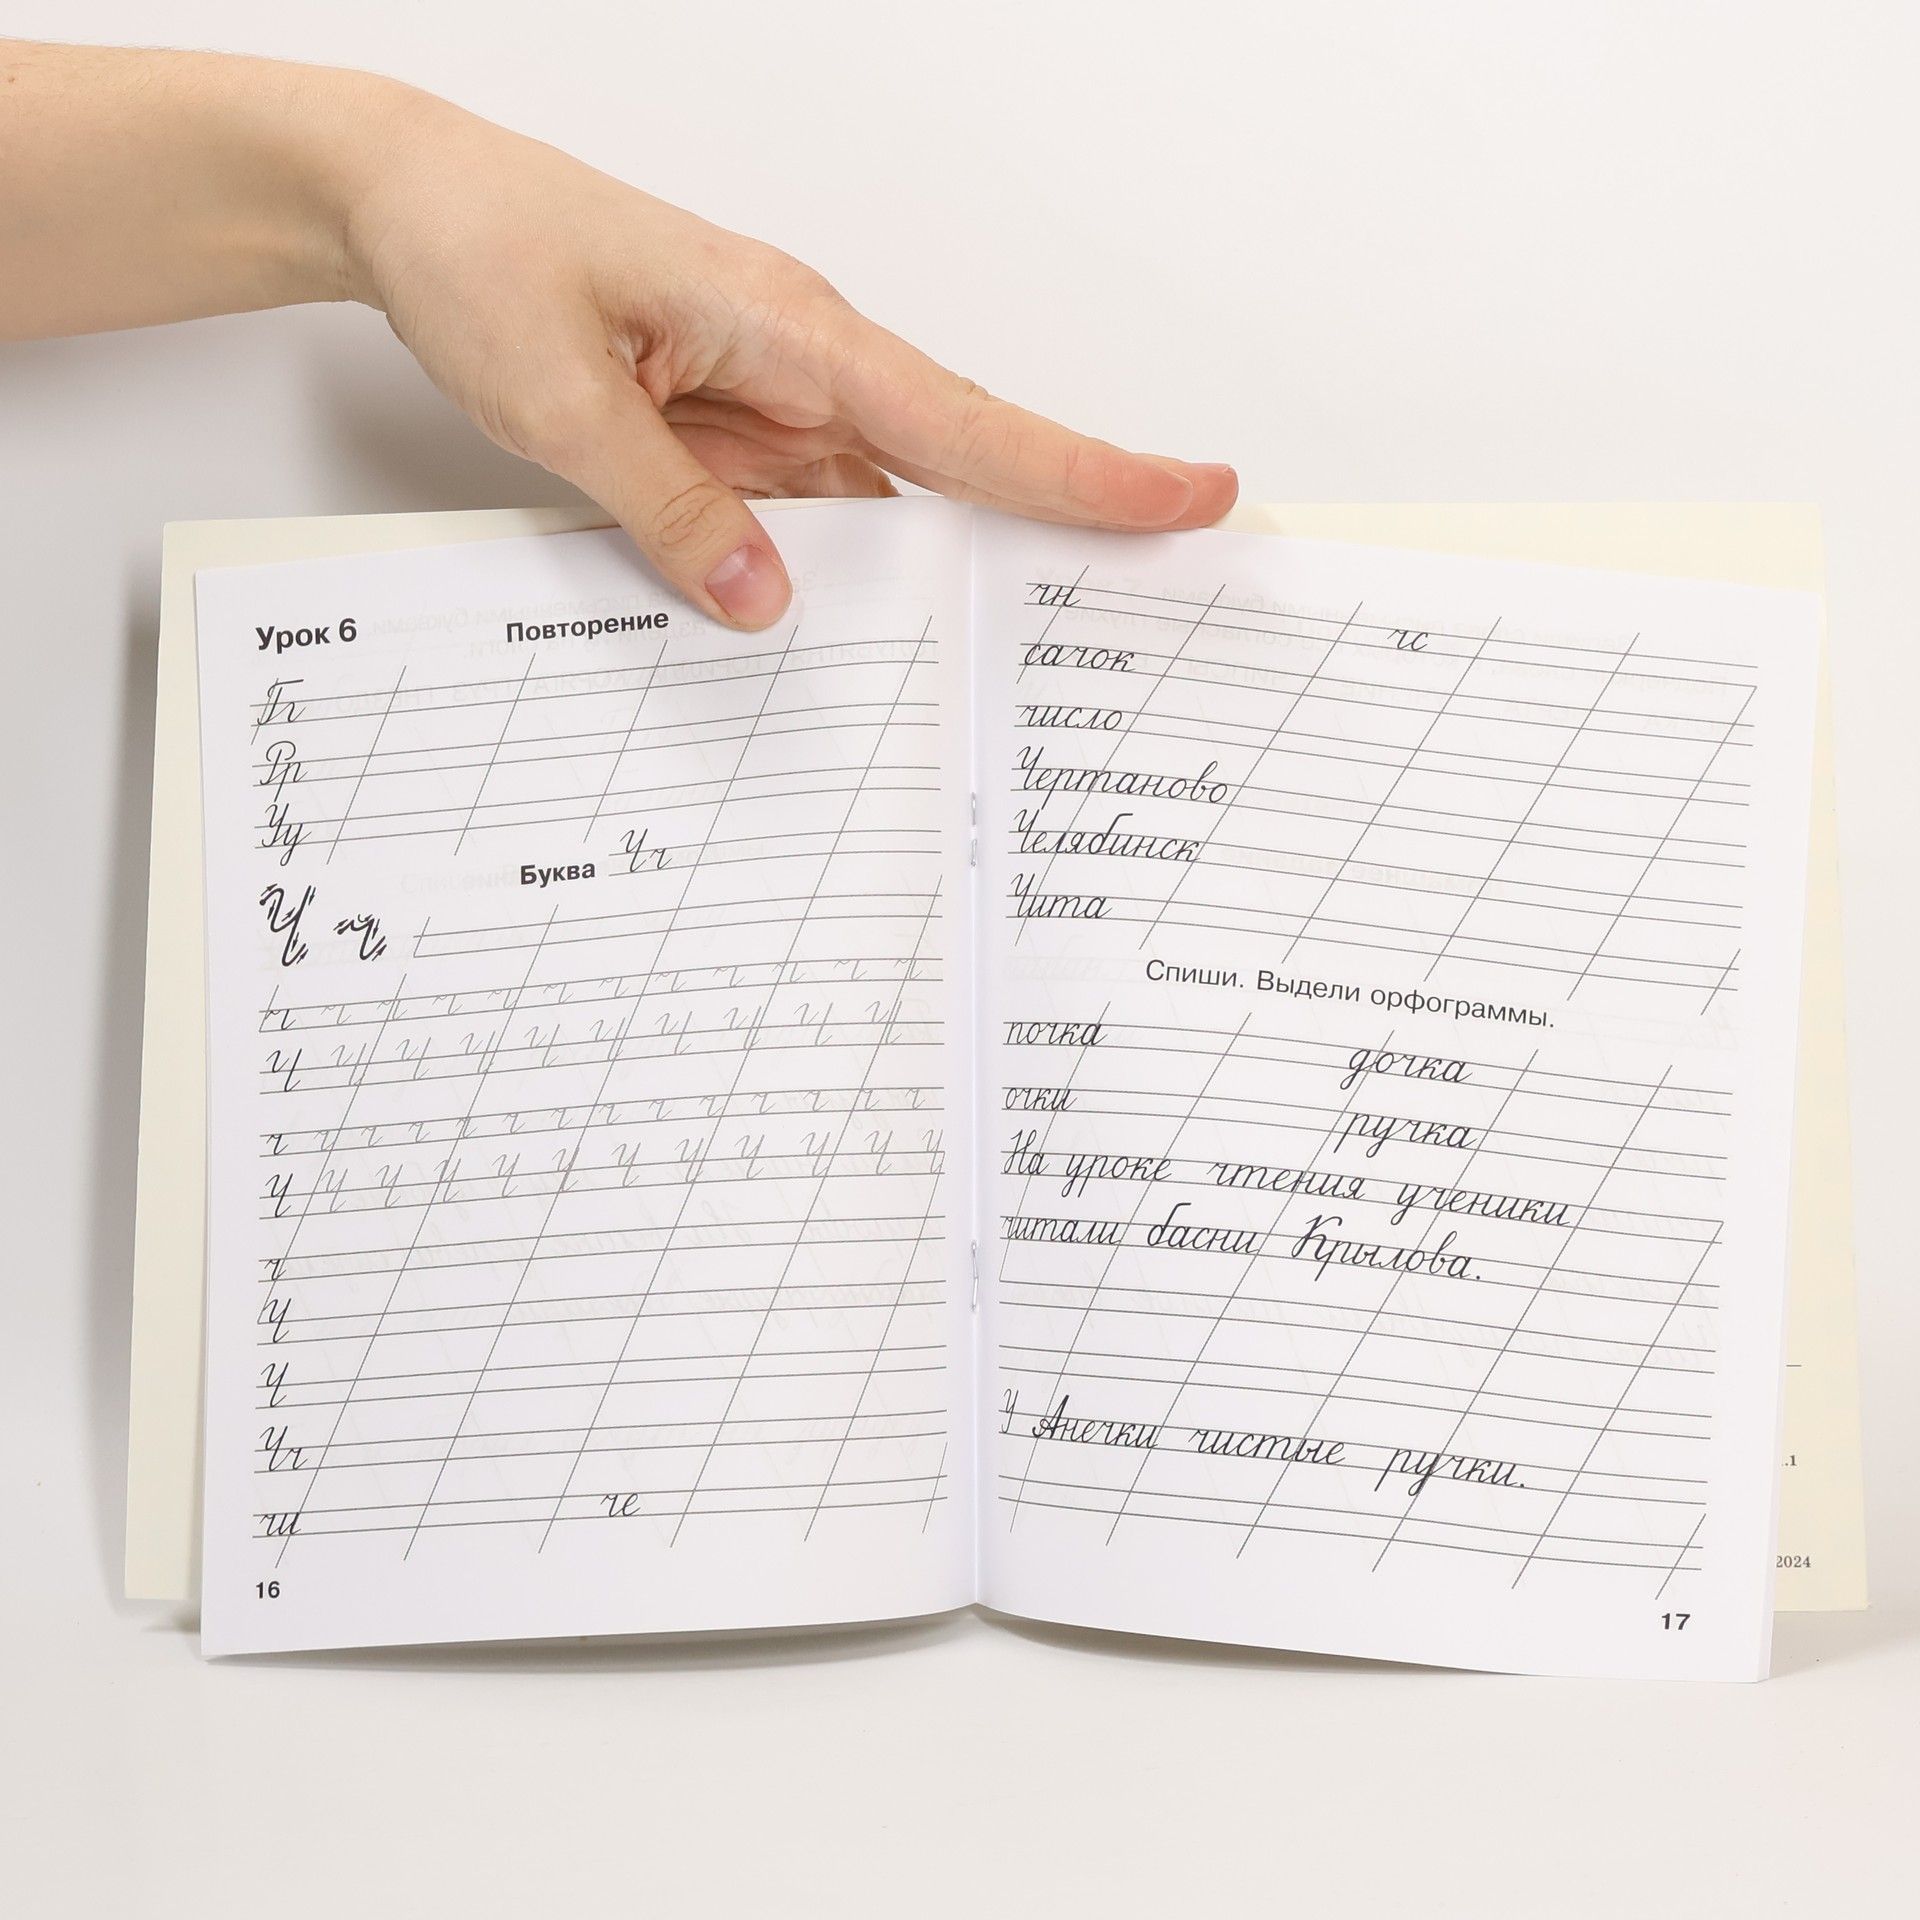 Урок 6
Повторение
Гг
Рр
Уу
Буква Чч
Ч ч
ч ч ч ч ч ч ч ч ч ч ч ч
Ч Ч Ч Ч Ч Ч Ч Ч Ч Ч
ч ч ч ч ч ч ч ч ч ч ч ч ч
Ч Ч Ч Ч Ч Ч Ч Ч Ч Ч Ч Ч
ч
Ч
Ч
Чч
чи че
16
чн чс
сачок
число
Чертаново
Челябинск
Чита
Спиши. Выдели орфограммы.
почка дочка
очки ручка
На уроке чтения ученики
читали басни Крылова.
У Анечки чистые ручки.
17
.1
2024